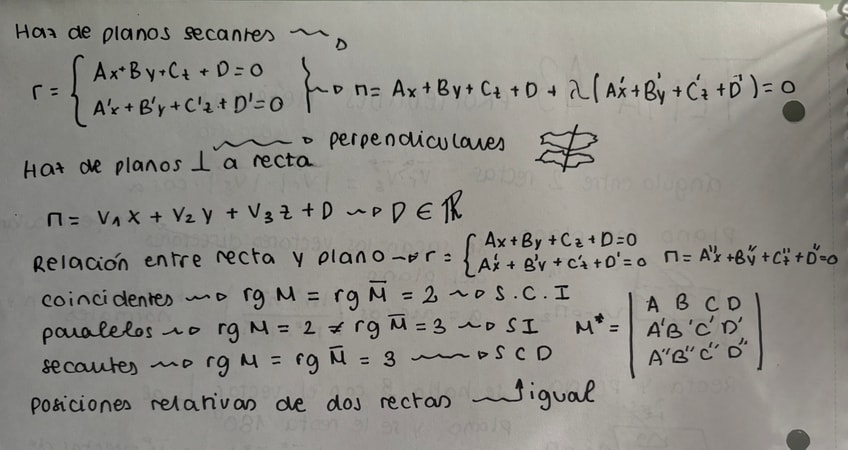 Haz de planos secantes →
r = { Ax+By+Cz+D=0
A'x+B'y+C'z+D'=0 } → π = Ax+By+Cz+D+λ(A'x+B'y+C'z+D')=0
→ perpendiculares
Haz de planos ⊥ a recta
π = V₁x + V₂y + V₃z + D → D ∈ ℝ
Relación entre recta y plano → r = { Ax+By+Cz+D=0
A'x+B'y+C'z+D'=0 π = A''x+B''y+C''z+D''=0
coincidentes → rg M = rg M̅ = 2 → S.C.I
paralelos → rg M = 2 ≠ rg M̅ = 3 → SI M* = | A B C D
A' B' C' D'
secantes → rg M = rg M̅ = 3 → SCD A'' B'' C'' D'' |
posiciones relativas de dos rectas → igual